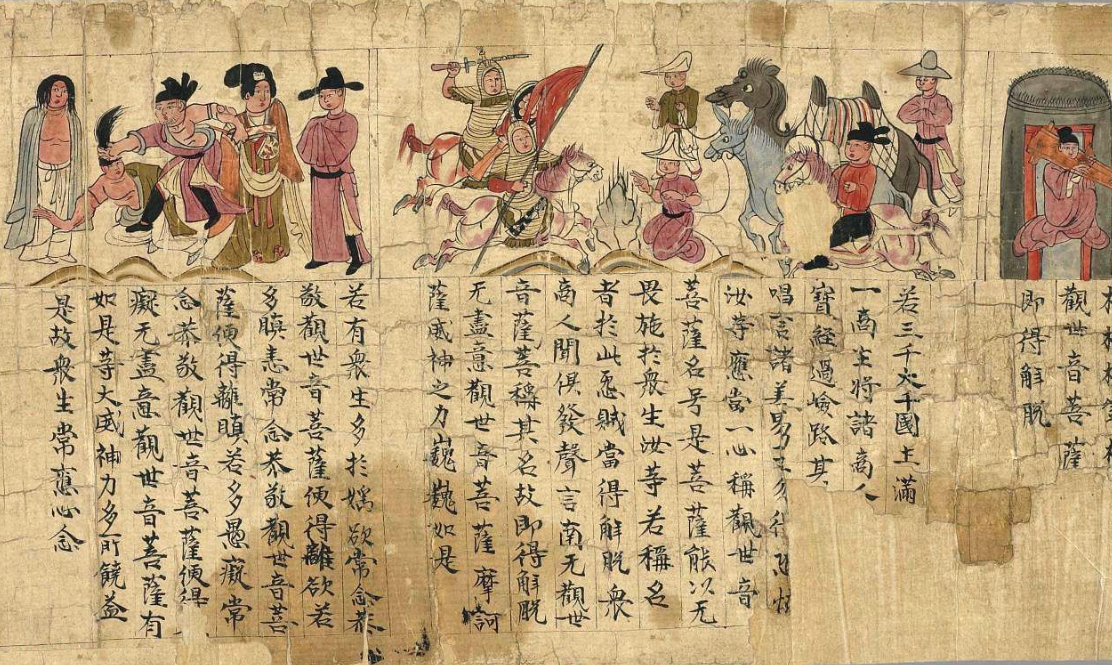 觀世音菩薩
即得解脫
若三千大千國土滿
一商主將諸商人
寶經過嶮路其
唱言諸善男子勿得恐怖
汝等應當一心稱觀世音
菩薩名号是菩薩能以无
畏施於衆生汝等若稱名
者於此惡賊當得解脫衆
商人聞俱發聲言南无觀世
音薩菩稱其名故即得解脫
无盡意觀世音菩薩摩訶
薩威神之力巍巍如是
若有衆生多於婬欲常念恭
敬觀世音菩薩便得離欲若
多瞋恚常念恭敬觀世音菩
薩便得離瞋若多愚癡常
念恭敬觀世音菩薩便得
癡无盡意觀世音菩薩有
如是等大威神力多所饒益
是故衆生常應心念